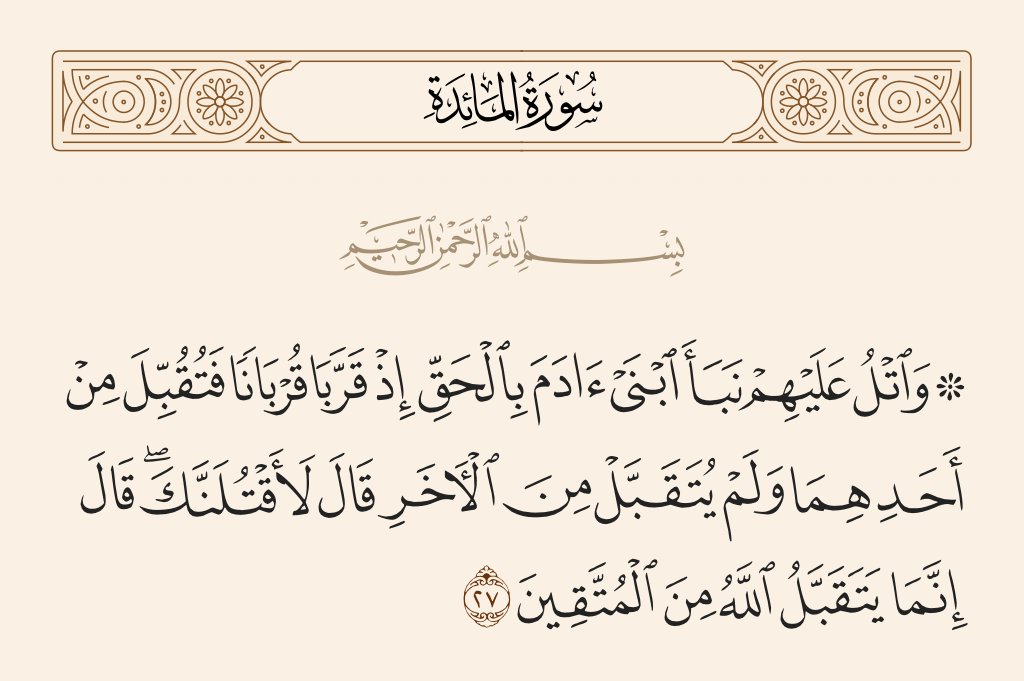 سُورَةُ المَائِدَةِ
بِسْمِ ٱللَّهِ ٱلرَّحْمَٰنِ ٱلرَّحِيمِ
۞ وَٱتْلُ عَلَيْهِمْ نَبَأَ ٱبْنَىْ ءَادَمَ بِٱلْحَقِّ إِذْ قَرَّبَا قُرْبَانًا فَتُقُبِّلَ مِنْ
أَحَدِهِمَا وَلَمْ يُتَقَبَّلْ مِنَ ٱلْأَخَرِ قَالَ لَأَقْتُلَنَّكَ ۖ قَالَ
إِنَّمَا يَتَقَبَّلُ ٱللَّهُ مِنَ ٱلْمُتَّقِينَ ٢٧